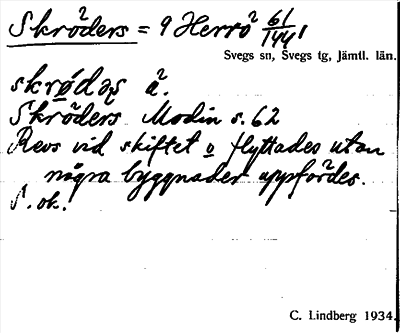 Skröders = 9 Herrö 61/1441
Svegs sn, Svegs tg, Jämtl. län.
skrødəs
Skröders Modin s. 62
Revs vid skiftet o flyttades utan
några byggnader uppfördes.
S. ok.
C. Lindberg 1934.